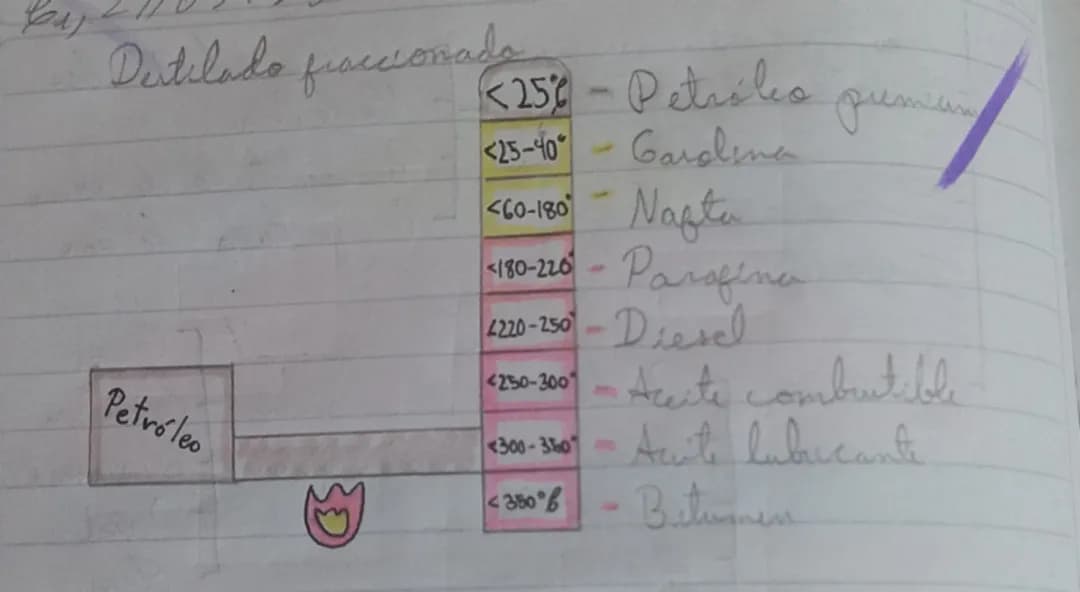 Destilado fraccionado
<25°C - Petróleo premium
<25-40° - Gasolina
<60-180° - Nafta
<180-220° - Parafina
<220-250° - Diesel
<250-300° - Aceite combustible
<300-350° - Aceite lubricante
<350°C - Bitumen
Petróleo